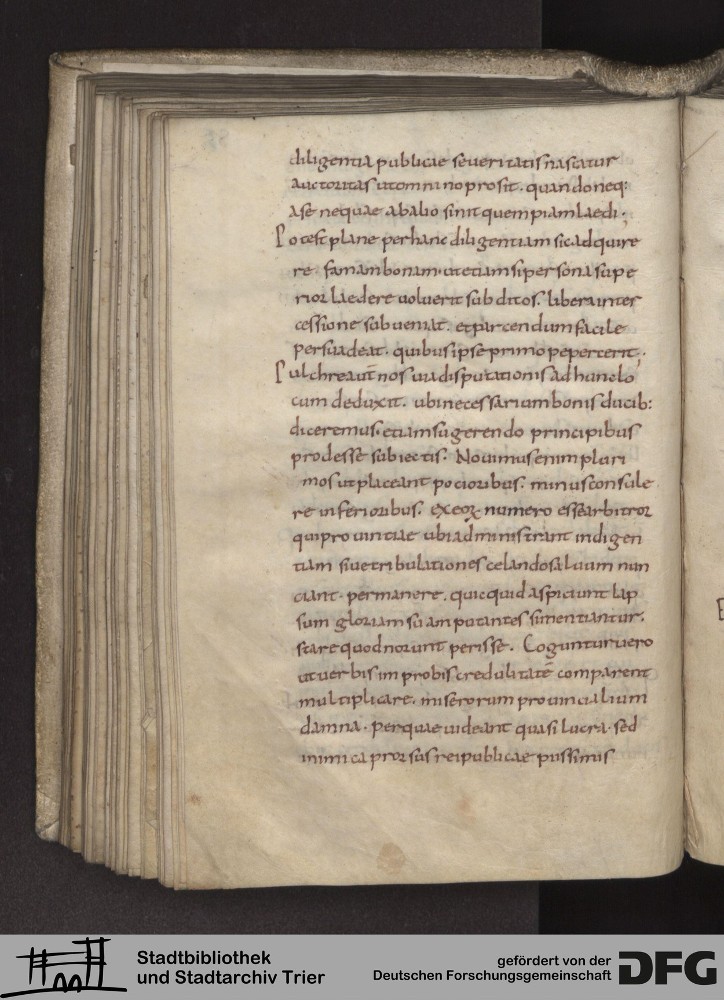 diligentia publicae severitatis nascatur
auctoritas ut omnino prosit. quando neq:
a se nequae ab alio sinit quempiam laedi.
Potest plane per hanc diligentiam sic adquire
re famam bonam. ut etiam si persona supe
rior laedere uoluerit subditos. libera inter
cessione subueniat. et parcendum facile
persuadeat. quibus ipse primo pepercerit.
Pulchre aut̄ nos uia disputationis ad hunc lo
cum deduxit. ubi necessarium bonis ducib:
diceremus. etiam sugerendo principibus
prodesse subiectis. Nouimus enim pluri
mos ut placeant pocioribus. minus consule
re inferioribus. ex eoꝝ numero esse arbitror
qui prouintiae ubi administrant indigen
tiam siue tribulationes celando saluum nun
ciant permanere. quicquid aspiciunt lap
sum gloriam suam putantes si mentiantur.
stare quod norunt perisse. Coguntur uero
ut uerbis improbis credulitatē comparent
multiplicare. miserorum prouincialium
damna. per quae uideant quasi lucra. sed
inimica prorsus reipublicae piissimis
Stadtbibliothek
und Stadtarchiv Trier
gefördert von der
Deutschen Forschungsgemeinschaft
DFG